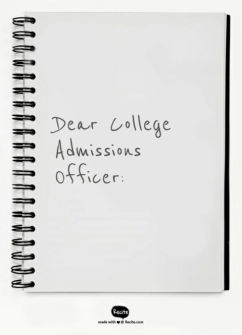 Dear College
Admissions
Officer:
Recite
made with ❤ @ Recite.com